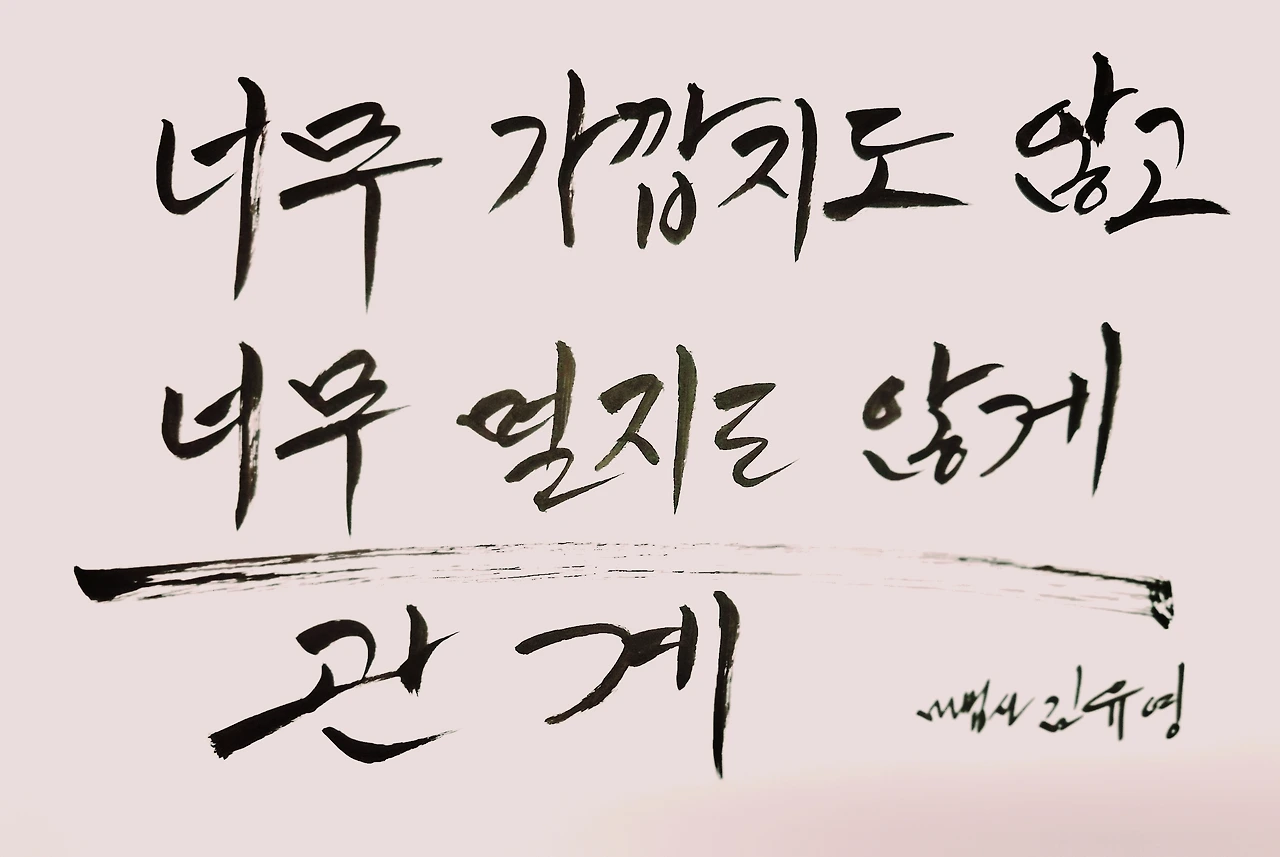 너무 가깝지도 않고
너무 멀지도 않게
관계
김유영